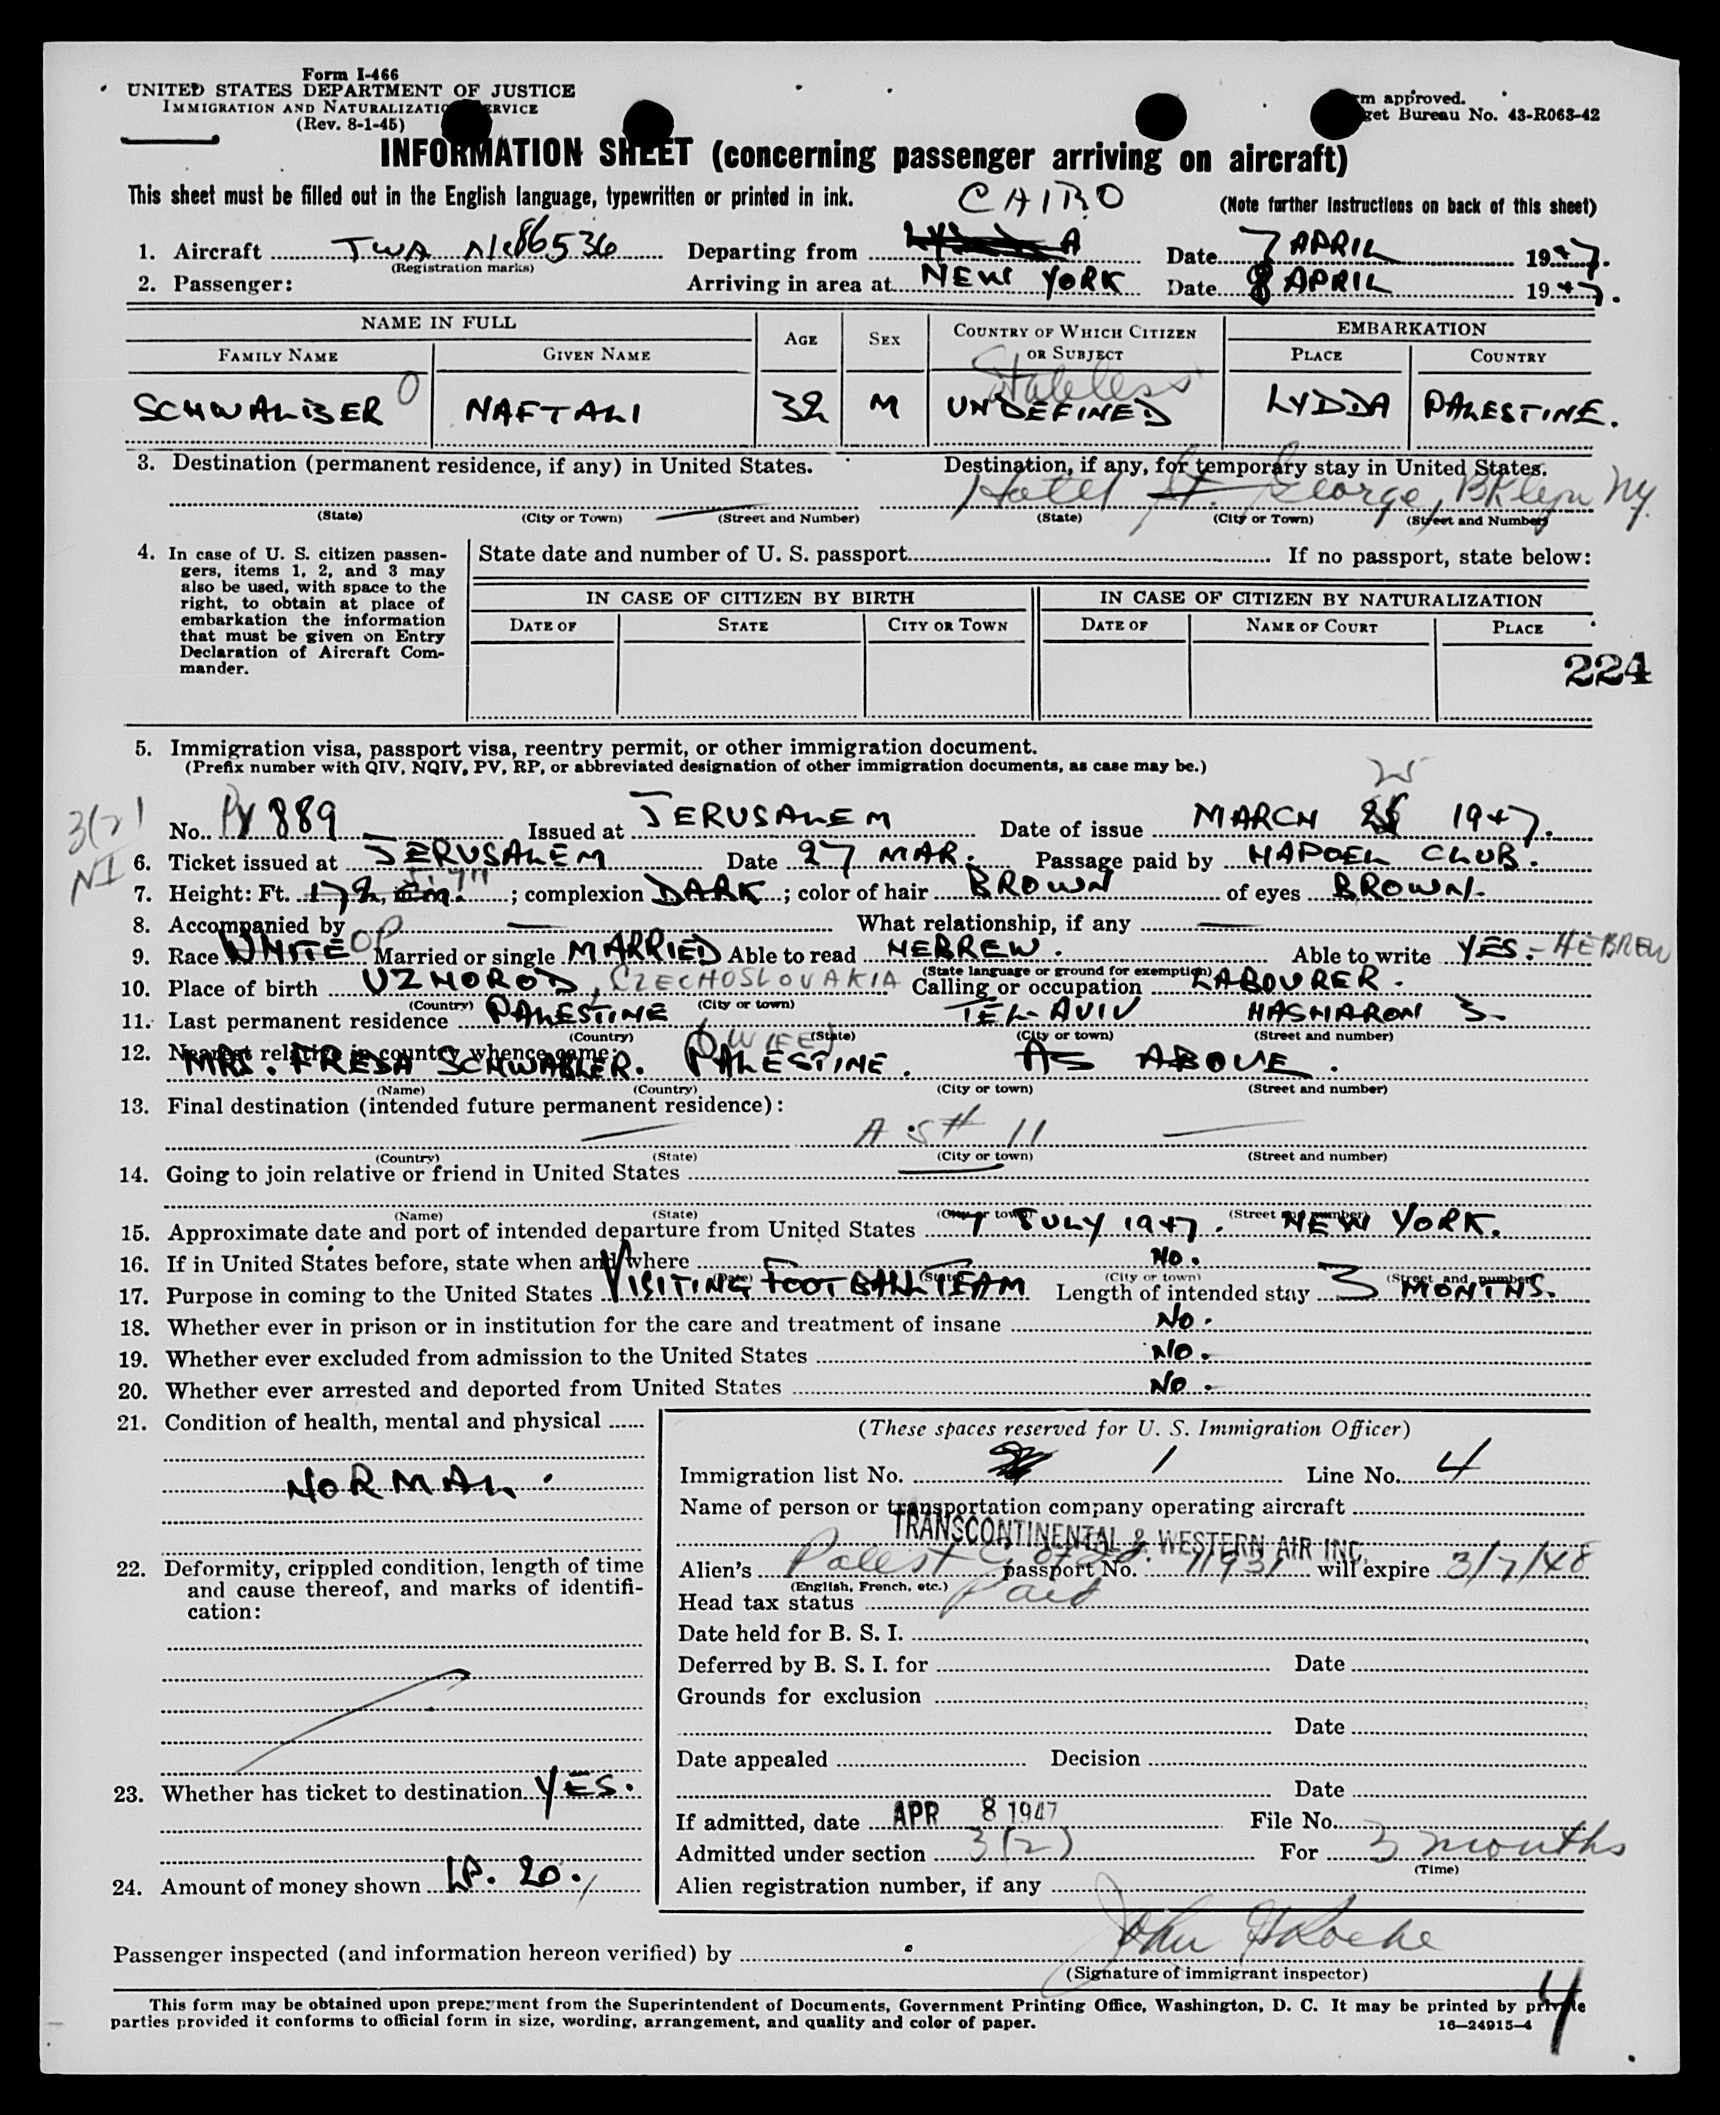 Form I-466
UNITED STATES DEPARTMENT OF JUSTICE
IMMIGRATION AND NATURALIZATION SERVICE
(Rev. 8-1-45)
approved.
Bureau No. 43-R063-42
INFORMATION SHEET (concerning passenger arriving on aircraft)
This sheet must be filled out in the English language, typewritten or printed in ink.
(Note further instructions on back of this sheet)
CAIRO
1. Aircraft TWA NC86536 Departing from Date 7 APRIL 1947.
(Registration marks)
2. Passenger: Arriving in area at NEW YORK Date 8 APRIL 1947.
NAME IN FULL AGE SEX COUNTRY OF WHICH CITIZEN OR SUBJECT EMBARKATION
FAMILY NAME GIVEN NAME PLACE COUNTRY
Stateless
SCHWALBER O NAFTALI 32 M UNDEFINED LYDDA PALESTINE.
3. Destination (permanent residence, if any) in United States. Destination, if any, for temporary stay in United States.
Hotel St. George, Bklyn NY.
(State) (City or Town) (Street and Number) (State) (City or Town) (Street and Number)
4. In case of U. S. citizen passengers, items 1, 2, and 3 may also be used, with space to the right, to obtain at place of embarkation the information that must be given on Entry Declaration of Aircraft Commander.
State date and number of U. S. passport If no passport, state below:
IN CASE OF CITIZEN BY BIRTH IN CASE OF CITIZEN BY NATURALIZATION
DATE OF STATE CITY OR TOWN DATE OF NAME OF COURT PLACE
224
5. Immigration visa, passport visa, reentry permit, or other immigration document.
(Prefix number with QIV, NQIV, PV, RP, or abbreviated designation of other immigration documents, as case may be.)
3(2)
NI
No. PV 889 Issued at JERUSALEM Date of issue MARCH 25 1947.
6. Ticket issued at JERUSALEM Date 27 MAR. Passage paid by HAPOEL CLUB.
7. Height: Ft. 172 cm. 5'7" ; complexion DARK ; color of hair BROWN of eyes BROWN.
8. Accompanied by — What relationship, if any —
9. Race WHITE OP Married or single MARRIED Able to read HEBREW. Able to write YES. - HEBREW
(State language or ground for exemption)
10. Place of birth UZHOROD, CZECHOSLOVAKIA Calling or occupation LABOURER.
(Country) (City or town)
11. Last permanent residence PALESTINE TEL-AVIV HASHARON 3.
(Country) (State) (City or town) (Street and number)
12. Nearest relative in country whence came:
MRS. FREDA SCHWABLER. (WIFE) PALESTINE. AS ABOVE.
(Name) (Country) (City or town) (Street and number)
13. Final destination (intended future permanent residence):
— A S # 11 —
(Country) (State) (City or town) (Street and number)
14. Going to join relative or friend in United States —
(Name) (State) (City or town) (Street and number)
15. Approximate date and port of intended departure from United States 7 JULY 1947. NEW YORK.
16. If in United States before, state when and where NO.
(Date) (State) (City or town) (Street and number)
17. Purpose in coming to the United States VISITING FOOTBALL TEAM Length of intended stay 3 MONTHS.
18. Whether ever in prison or in institution for the care and treatment of insane NO.
19. Whether ever excluded from admission to the United States NO.
20. Whether ever arrested and deported from United States NO.
21. Condition of health, mental and physical
NORMAL.
22. Deformity, crippled condition, length of time and cause thereof, and marks of identification:
23. Whether has ticket to destination YES.
24. Amount of money shown LP. 20.
(These spaces reserved for U. S. Immigration Officer)
Immigration list No. 1 Line No. 4
Name of person or transportation company operating aircraft
TRANSCONTINENTAL & WESTERN AIR INC.
Alien's Palest passport No. 11931 will expire 3/7/48
(English, French, etc.)
Head tax status Paid
Date held for B. S. I.
Deferred by B. S. I. for Date
Grounds for exclusion
Date
Date appealed Decision
Date
If admitted, date APR 8 1947 File No.
Admitted under section 3(2) For 3 months
(Time)
Alien registration number, if any
Passenger inspected (and information hereon verified) by John H Roche
(Signature of immigrant inspector)
4
This form may be obtained upon prepayment from the Superintendent of Documents, Government Printing Office, Washington, D. C. It may be printed by private
parties provided it conforms to official form in size, wording, arrangement, and quality and color of paper.
16—24915-4